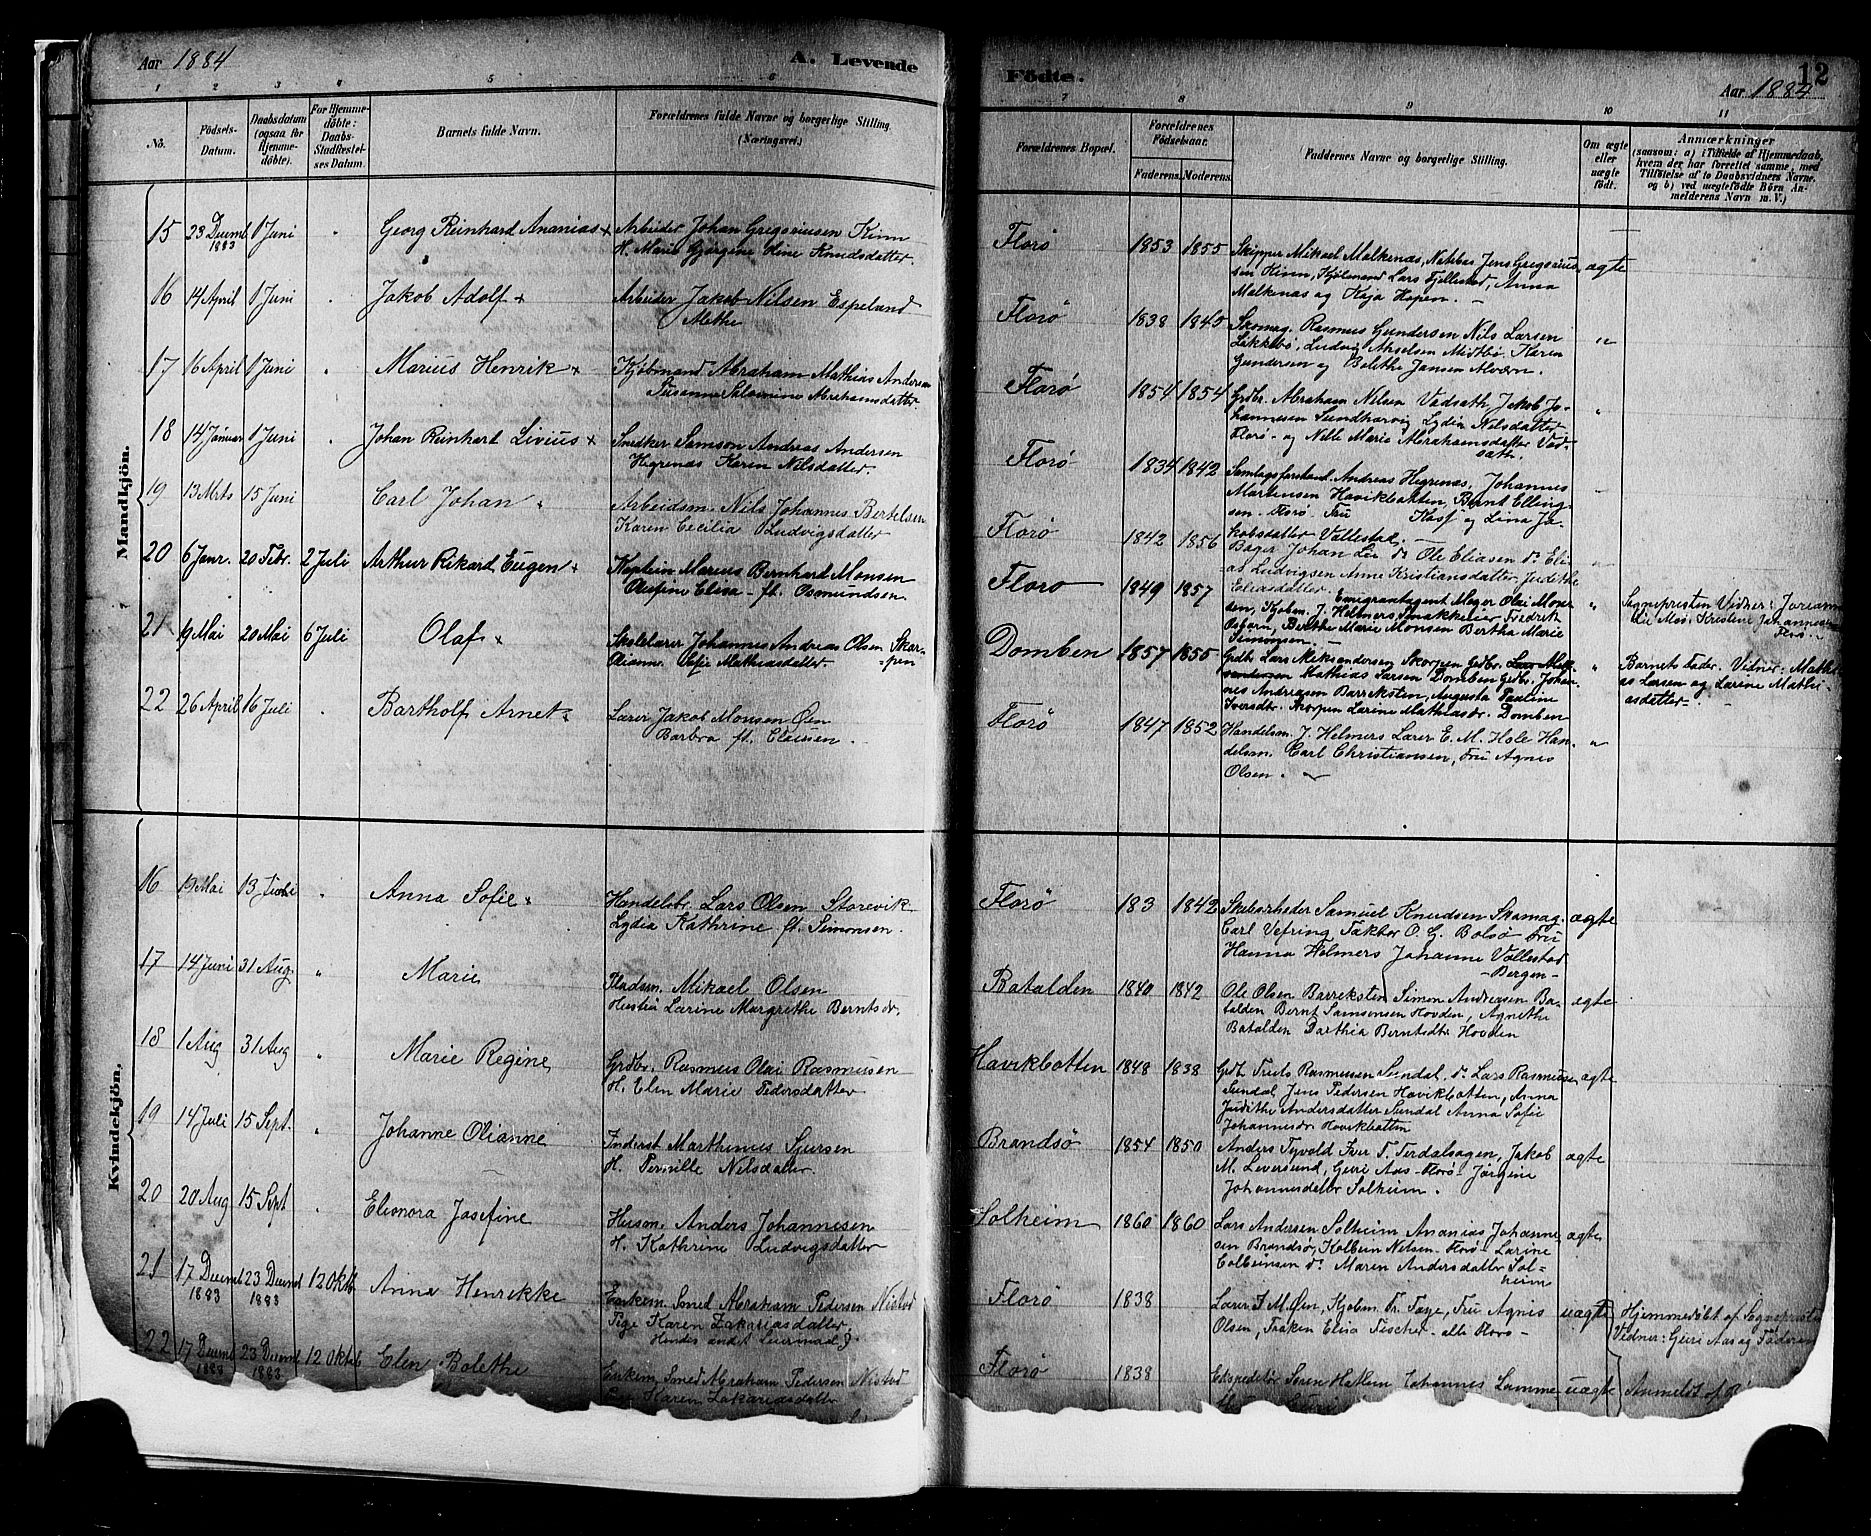 Aar 1884
A. Levende
Födte.
12
Aar 1884
1 2 3 4 5 6 7 8 9 10 11
No.
Födsels-
Datum.
Daabsdatum
(ogsaa for
Hjemme-
döbte).
For Hjemme-
döbte:
Daabs-
Stadfæstel-
ses Datum.
Barnets fulde Navn.
Forældrenes fulde Navne og borgerlige Stilling.
(Næringsvei.)
Forældrenes Bopæl.
Forældrenes
Födselsaar.
Faderens.
Moderens.
Faddernes Navne og borgerlige Stilling.
Om ægte
eller
uægte
födt.
Anmærkninger
(saasom: a) i Tilfælde af Hjemmedaab,
hvem der har forrettet samme, med
Tilföielse af to Daabsvidners Navne,
og b) ved uægtefödte Börn An-
melderens Navn m. V.)
Mandkjön.
15 23 Decemb 1883 1 Juni " Georg Reinhard Ananias x Arbeider Johan Gregoriusen Kinn
H. Marie Gjørgine Line Knudsdatter.
Florø 1853 1855 Skipper Mikael Malkenæs, Jens Gregorius- ægte
sen Kinn, Lars Fjellestad, Anna
Malkenæs og Kaja Hopen.
16 14 April 1 Juni " Jakob Adolf x Arbeider Jakob Nilsen Espeland
Methe
Florø 1838 1845 Skomag. Rasmus Gundersen Nils Larsen "
Løkkebø, Ludvig Akselsen Midtbø, Karen
Gundersen og Bolethe Jansen
17 16 April 1 Juni " Marius Henrik x Kjøbmand Abraham Mathias Andersen
Susanne Salomine Abrahamsdatter.
Florø 1854 1854 Grdbr. Abraham Nilsen Vadsath, Jakob Jo- "
hannesen Lydia Nilsdatter
Florø - og Nille Marie Abrahamsdatter Vad-
sath.
18 14 Januar 1 Juni " Johan Reinhard Livius x Snedker Samson Andreas Andersen
Hegrenæs Karen Nilsdatter.
Florø 1834 1842 Andreas Hegrenæs, Johannes
Martensen Havikbotten, Bernt Elling-
sen. Florø. Fru og Lina Ja-
kobsdatter Vallestad.
19 13 Mrts 15 Juni Carl Johan " Arbeidsm. Nils Johannes Bertelsen
Karen Cecilia Ludvigsdatter
Florø 1842 1856 Bager Johan Lie do Ole Eliasen do Eli-
as Ludvigsen Anne Kristiansdatter, Judithe
Eliasdatter.
20 6 Janr. 20 Febr. 2 Juli Arthur Rikard Eugen x Kaptein Marius Bernhard Monsen
Olufine Elisa - ft. Osmundsen.
Florø 1849 1857 Emigrantagent Meyer Olai Mons- " Sognepresten Vidner:
sen, Kjøbm. J. Helmers, Fredrik
Osborn, Berthe Marie Monsen Bertha Marie
Simonsen
21 9 Mai 20 Mai 6 Juli Olaf x Skolelærer Johannes Andreas Olsen Skor-
pen
Olianne Ofie Mathiasdatter
Domben 1857 1855 Grdbr. Lars Skorpen Grdbr.
Mathias Larsen Domben Grdbr. Johan-
nes Andreasen Barreksten, Augusta Pauline
Iversdtr. Skorpen Larine Mathiasdr. Domben
" Barnets Fader. Vidner: Mathi-
as Larsen og Larine Mathi-
asdatter.
22 26 April 16 Juli " Bartholf Arnet x Lærer Jakob Monsen Øen
Barbra ft. Clausen.
Florø 1847 1852 Handelsm. J. Helmers Lærer E. M. Hole Han- "
delsm. Carl Christiansen, Fru Agnes
Olsen.
Kvindekjön.
16 19 Mai 13 " Anna Sofie x Handelsbr. Lars Olsen Storevik
Lydia Kathrine ft. Simonsen.
Florø 183 1842 Samuel Knudsen Skomag. ægte
Carl Vefring O. G. Bolsø Fru
Hanna Helmers Johanne Vallestad
- Bergen -
17 14 Juni 31 Aug. " Marie Pladsm. Mikael Olsen
Hustru Larine Margrethe Berntsdr.
Batalden 1840 1842 Ole Olsen Barreksten Simon Andreasen Ba- ægte
talden Bernt Samsonsen Hovden, Agnethe
Batalden Dorthia Berntsdtr Hovden
18 1 Aug 31 Aug " Marie Regine Grdbr. Rasmus Olai Rasmussen
H. Elen Marie Pedersdatter
Havikbotten 1848 1838 Grdb. Truls Rasmussen Sundal do Lars Rasmussen ægte
Sundal Jens Pedersen Havikbotten, Anna
Judithe Andersdatter Sundal Anna Sofie
Johannesdr Havikbotten
19 14 Juli 15 Sept. " Johanne Olianne Inderst Marthinus Sjursen
H. Pernille Nilsdatter.
Brandsø 1854 1850 Anders Tyvold Iver T. Terdalsøgen, Jakob ægte
M. Leversund, Guri Aas Florø - Jørgine
Johannesdatter Solheim.
20 20 Aug 15 Sept " Elenora Josefine Husm. Anders Johannesen
H. Kathrine Ludvigsdatter
Solheim 1860 1860 Lars Andersen Solheim Ananias Johanne- ægte
sen Brandsø, Kolbein Nilsen Florø - Larine
Colbeinsen do Maren Andersdatter Sol-
heim
21 17 Decemb 1883 23 Decemb 1883 12 Oktb Anna Henrikke Enkem. Smed Abraham Pedersen Nistad
Pige Karen Zakariasdatter,
Hendes andet Leiermaal
Florø 1838 Lærer J. M. Øen, Kjøbm. Fr. Faye, Fru Agnes uægte
Olsen, Frøken Elisa Fischer - alle Florø -
Hjemmedøbt af Sognepresten
Vidner: Guri Aas og Faderen
22 17 Decemb 1883 23 Decemb 1883 12 Oktob Elen Bolethe Enkem. Smed Abraham Pedersen Nistad
Karen Zakariasdatter
Florø 1838 Ekspeditør Søren Johannes uægte Anmeldt af